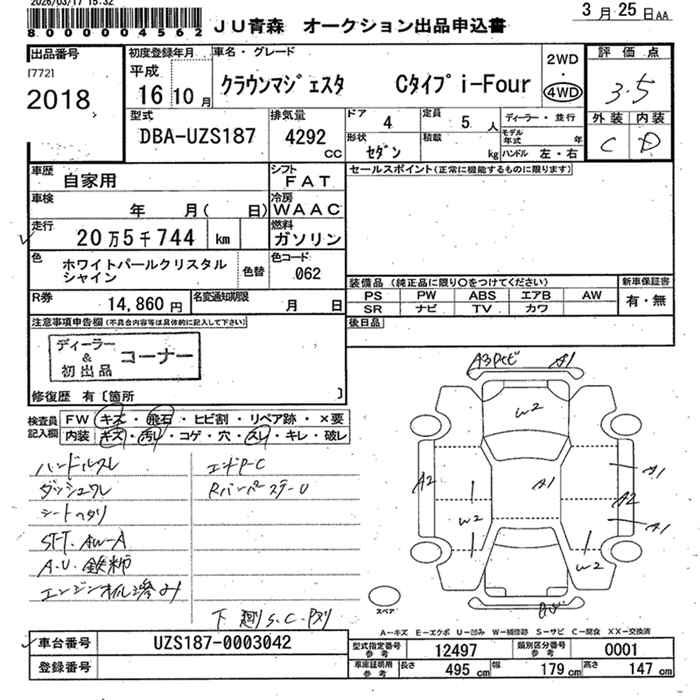 2026/03/17 15:32
800000004562
JU青森 オークション出品申込書
3月25日AA
出品番号
[772]
2018
初度登録年月
平成
16 10月
車名・グレード
クラウンマジェスタ Cタイプi-Four
2WD
・
4WD
評価点
3.5
外装 内装
C D
型式
DBA-UZS187
排気量
4292
CC
ドア 4
定員 5 人
形状 セダン
積載 kg
ディーラー・並行
モデル年式 年
ハンドル 左・右
車歴
自家用
シフト
FAT
車検
年 月( 日)
冷房
WAAC
走行
20万5千744 km
燃料
ガソリン
色
ホワイトパールクリスタル
シャイン
色替
色コード
062
R券
14,860円
名変通知期限
月 日
セールスポイント(正常に機能するものに限ります)
装備品(純正品に限り○をつけてください)
新車保証書
PS PW ABS エアB AW
SR ナビ TV カワ
有・無
後日品
注意事項申告欄(不具合内容等は具体的に記入して下さい)
ディーラー
&
初出品
コーナー
修復歴 有〔箇所 〕
検査員
記入欄
FW キズ・飛石・ヒビ割・リペア跡・×要
内装 キズ・汚レ・コゲ・穴・スレ・キレ・破レ
ハンドルスレ
ダッシュワレ
シートヘタリ
STT. AW-A
A.U.鉄柿
エンジンオイル滲み
エンドP-C
Rバンパーステ-U
A1
W2
A1
A2
W2
A1
A2
A1
W2
スペア
A-キズ E-エクボ U-凹み W-補修跡 S-サビ C-腐食 XX-交換済
車台番号
UZS187-0003042
登録番号
型式指定番号
参考
12497
類別区分番号
参考
0001
車庫証明用
参考
長さ 495 cm
幅 179 cm
高さ 147 cm